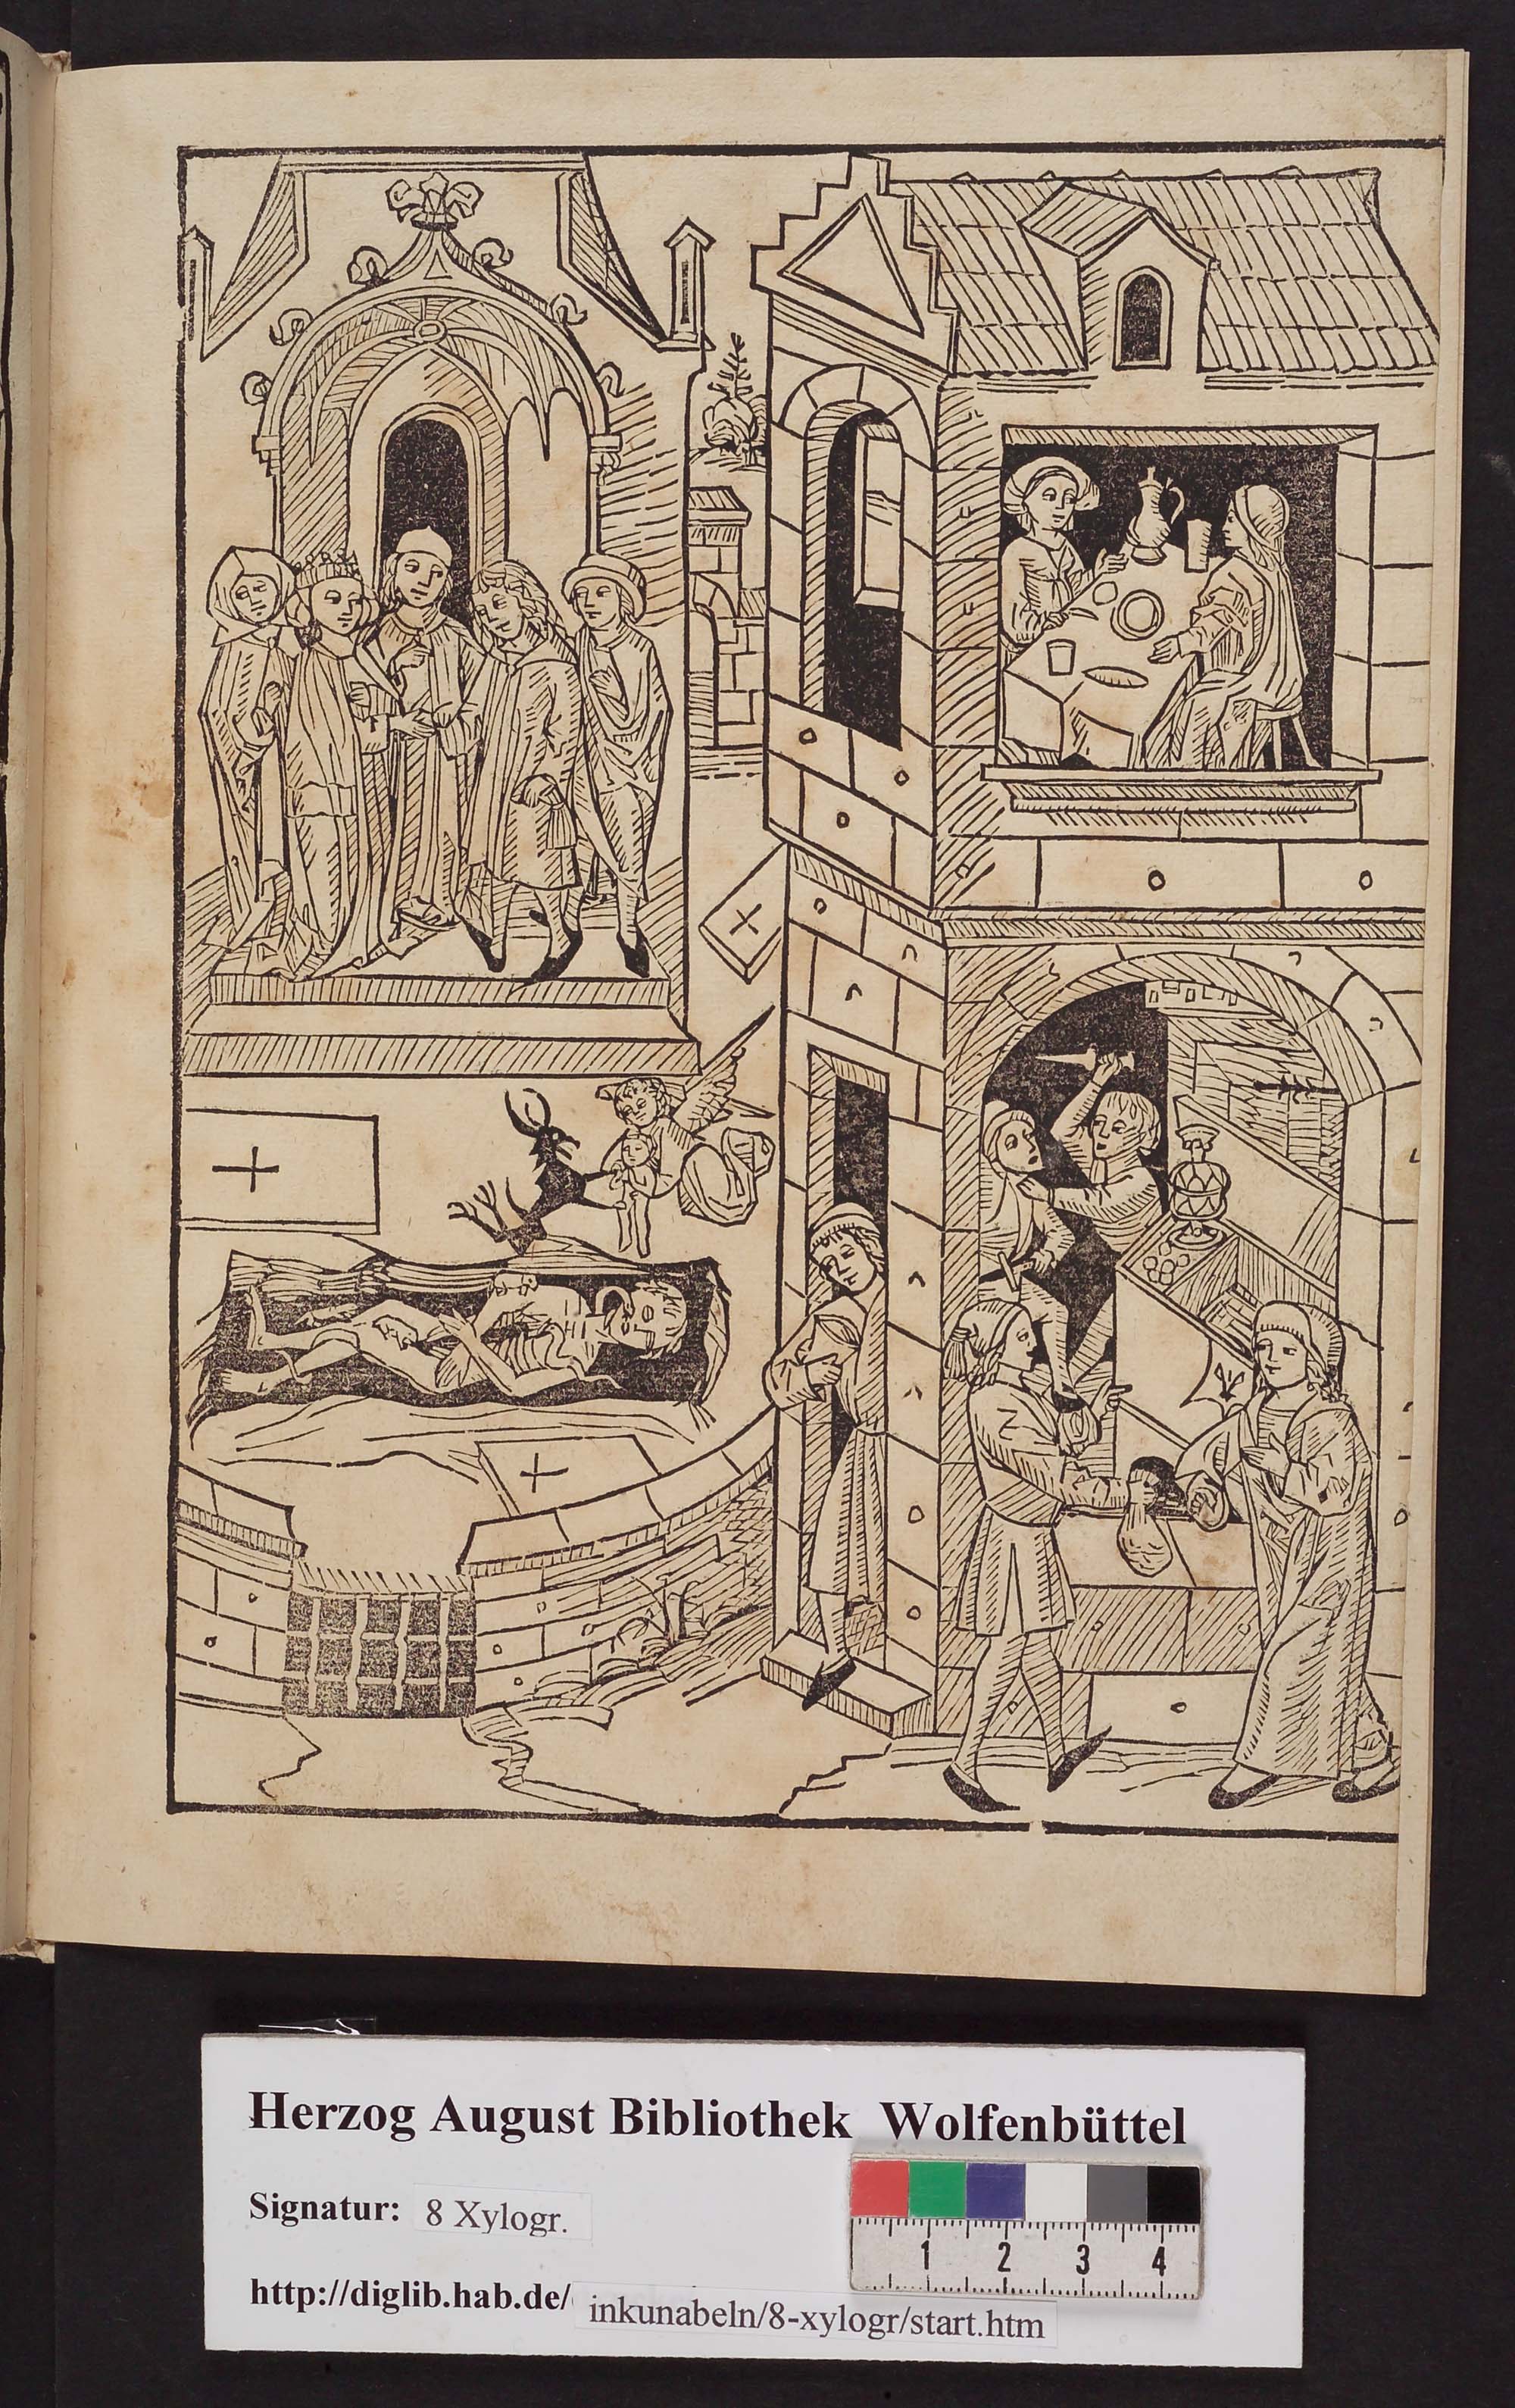 Herzog August Bibliothek Wolfenbüttel
Signatur: 8 Xylogr.
1 2 3 4
http://diglib.hab.de/inkunabeln/8-xylogr/start.htm